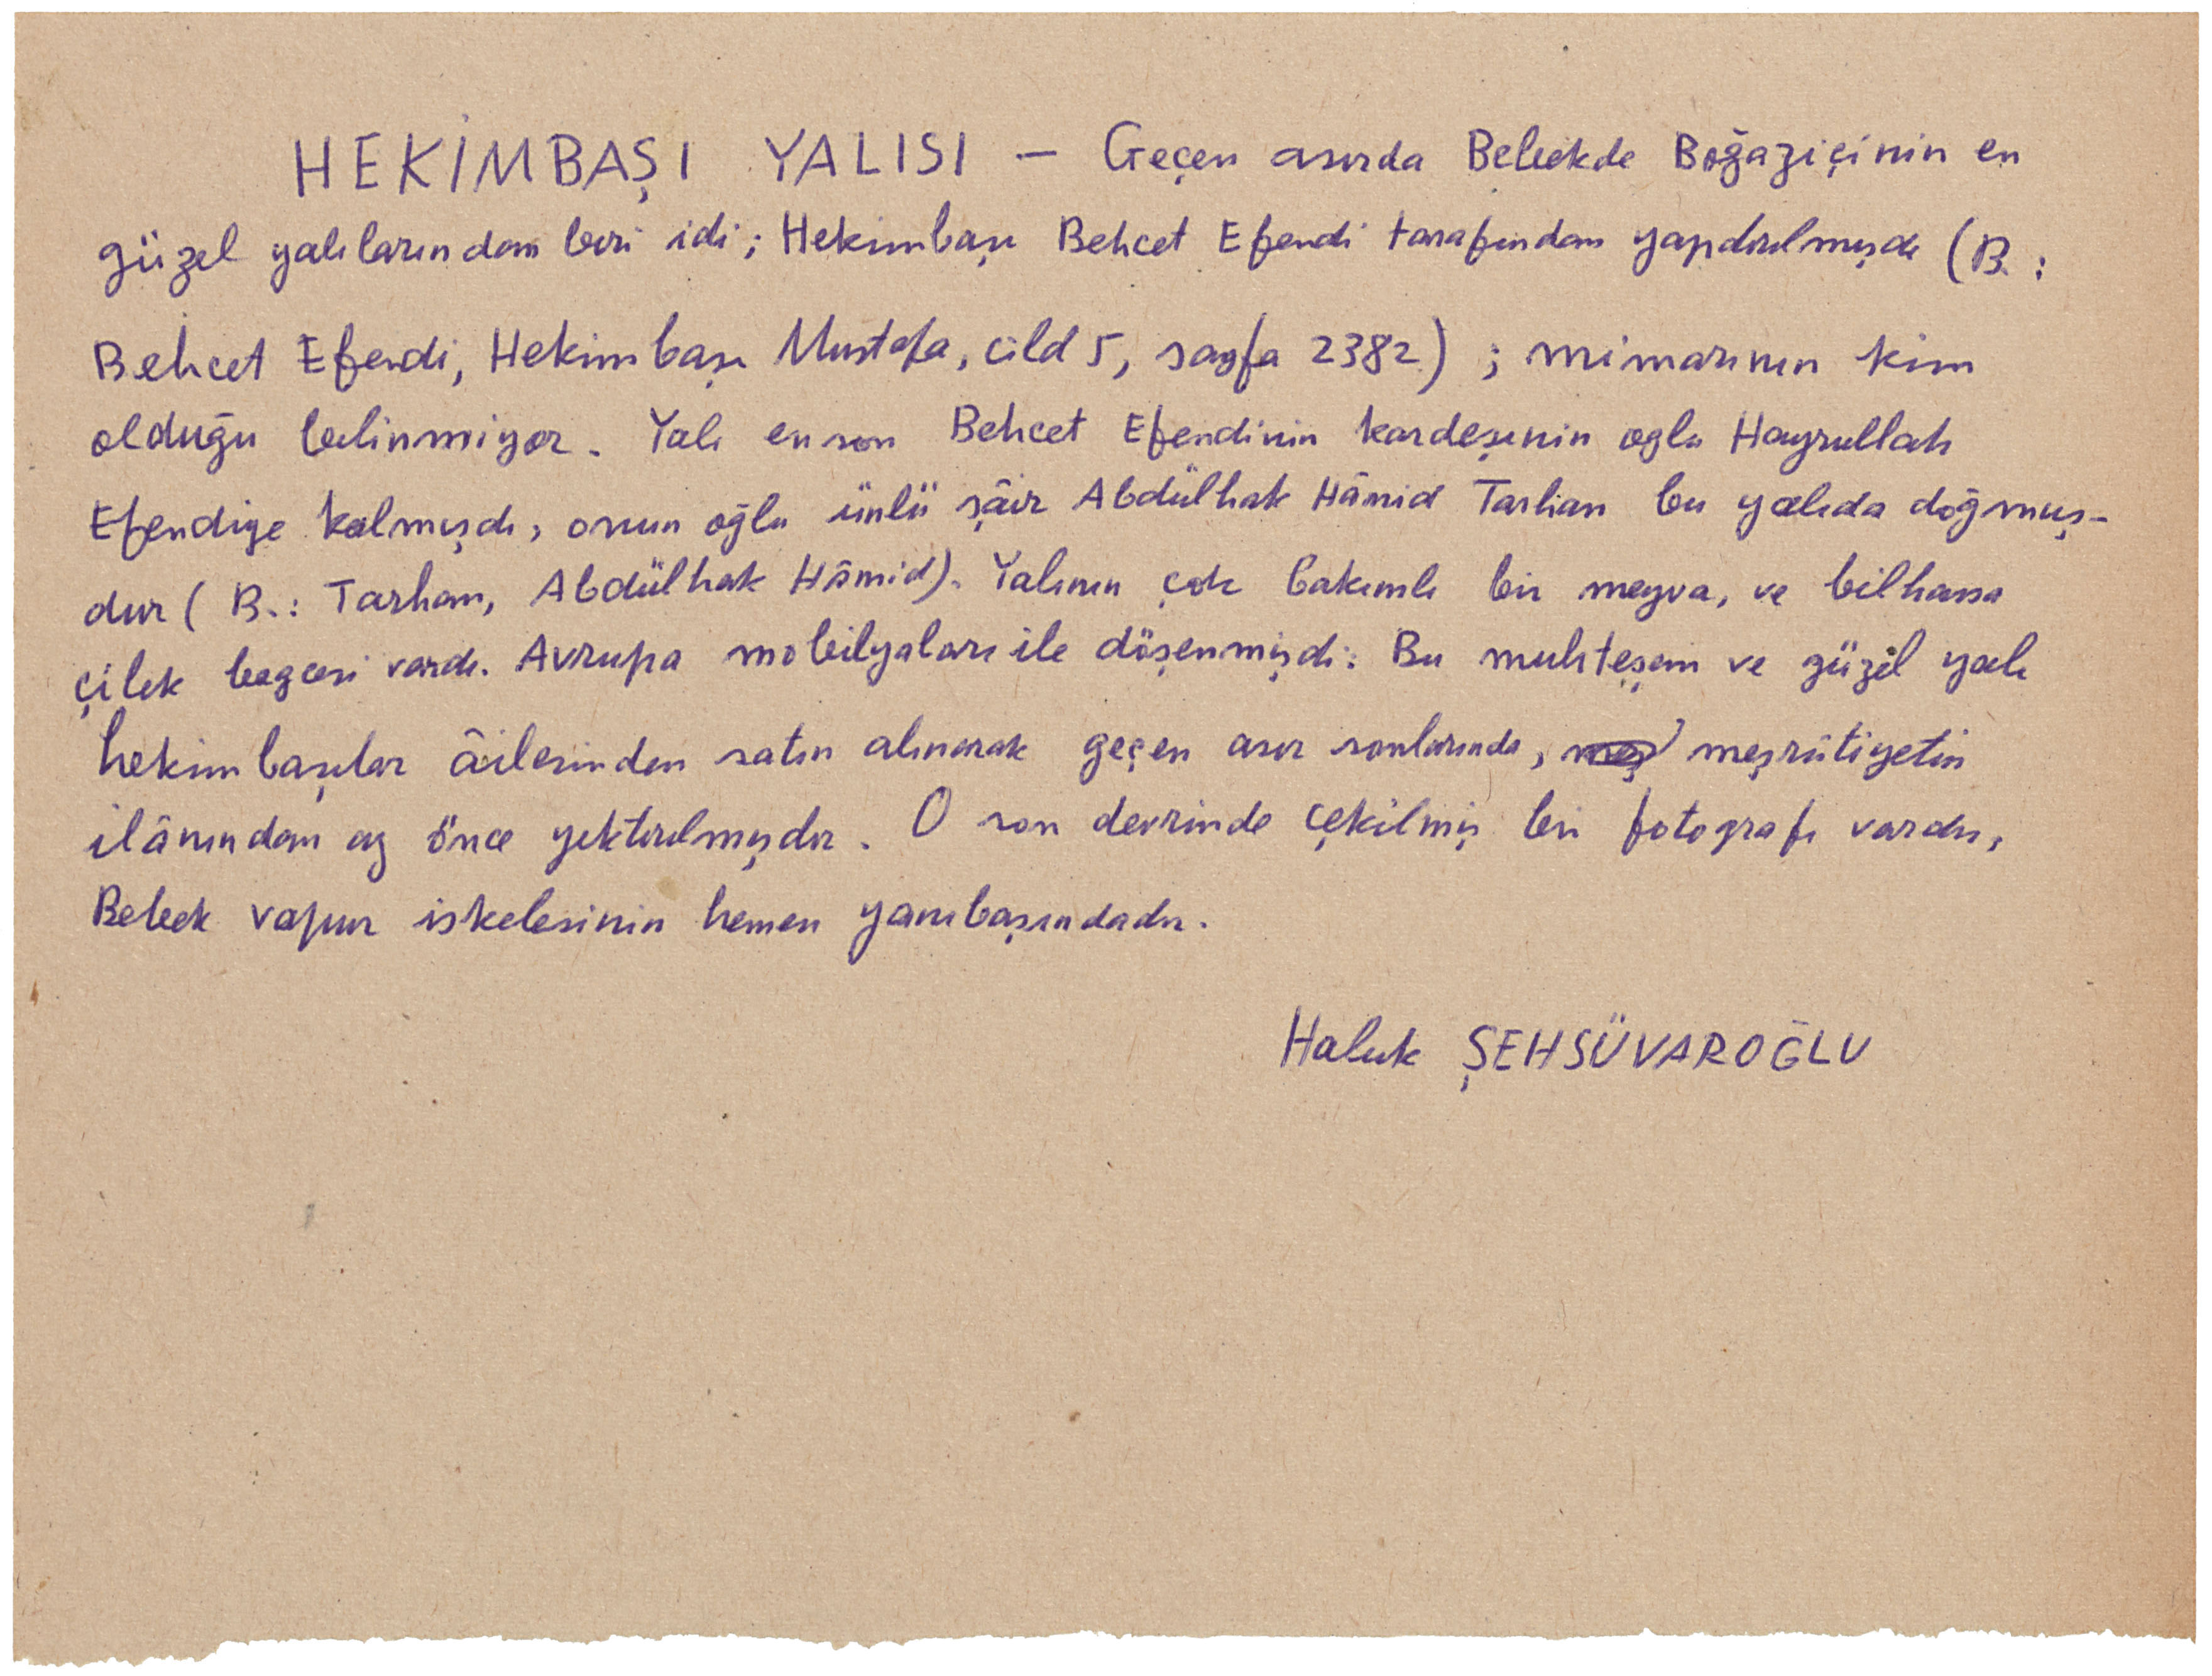 HEKİMBAŞI YALISI — Geçen asırda Bebekde Boğaziçinin en
güzel yalılarından biri idi; Hekimbaşı Behcet Efendi tarafından yapdırılmışdı (B.:
Behcet Efendi, Hekimbaşı Mustafa, cild 5, sayfa 2382) ; mimarının kim
olduğu bilinmiyor. Yalı en son Behcet Efendinin kardeşinin oğlu Hayrullah
Efendiye kalmışdı, onun oğlu ünlü şâir Abdülhak Hâmid Tarhan bu yalıda doğmuş-
dur (B.: Tarhan, Abdülhak Hâmid). Yalının çok bakımlı bir meyva, ve bilhassa
çilek bağçesi vardı. Avrupa mobilyaları ile döşenmişdi. Bu muhteşem ve güzel yalı
hekimbaşılar âilesinden satın alınarak geçen asır sonlarında, meşrûtiyetin
ilânından az önce yıktırılmışdır. O son devrinde çekilmiş bir fotografı vardır,
Bebek vapur iskelesinin hemen yanıbaşındadır.
Haluk ŞEHSÜVAROĞLU